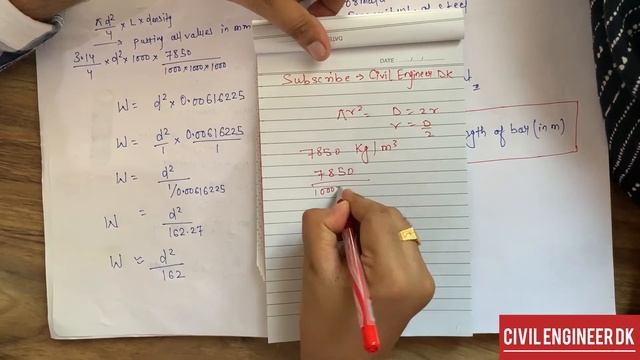 πd²/4 × L × density
→ putting all values in mm
3.14/4 × d² × 1000 × 7850/1000×1000×1000
W = d² × 0.00616225
W = d²/1 × 0.00616225/1
W = d²/1/0.00616225
W = d²/162.27
W ≈ d²/162
of steel
ngth of bar (in m)
DATE
Subscribe → Civil Engineer DK
πr² = D = 2r
r = D/2
7850 Kg/m³
7850
1000
CIVIL ENGINEER DK